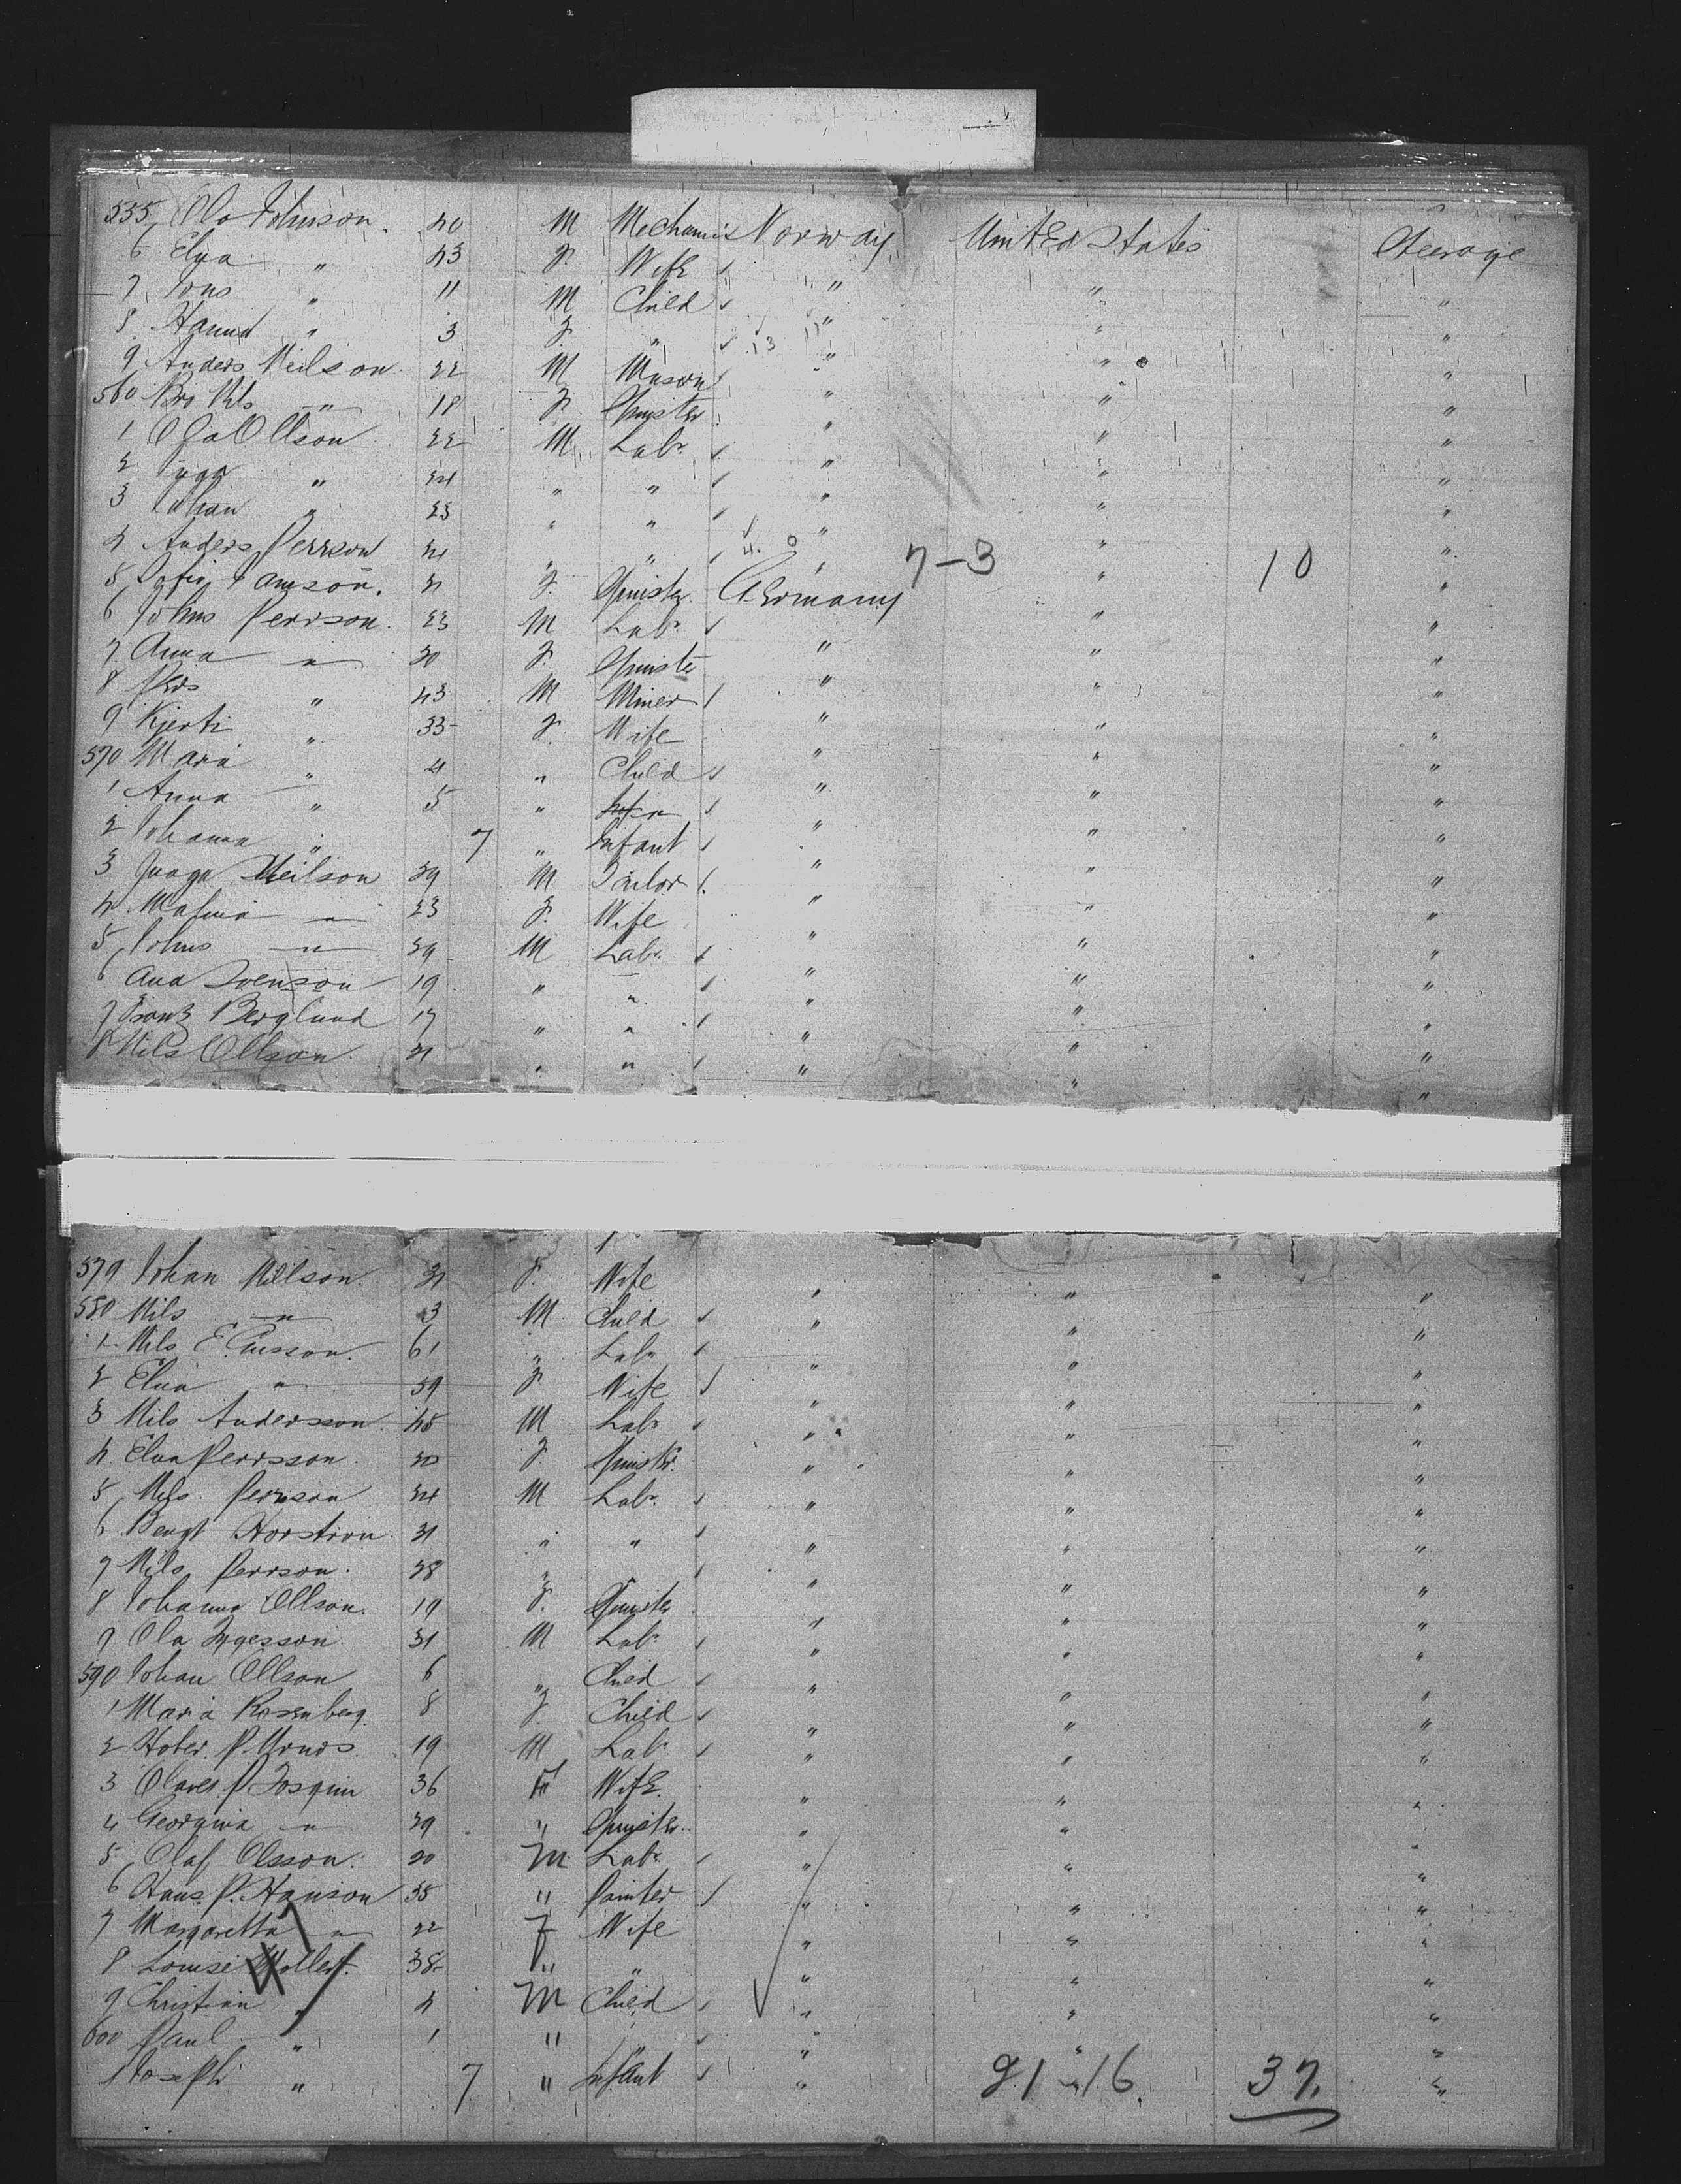 555 Ola Johnson 40 M Mechanic Norway United States Steerage
6 Elna " 43 F Wife " " "
7 Jons " 11 M Child " " "
8 Hanna " 3 F " " " "
9 Anders Neilson 22 M Mason " " "
560 Nils " 18 F Spinster " " "
1 Ola Ollson 22 M Labr " " "
2 " 24 " " " " "
3 Johan " 23 " " " " "
4 Anders Persson 21 " " " " "
7-3 10
5 Sofia 21 F Spinster Germany " "
6 Johns Persson 23 M Labr " " "
7 Anna " 20 F Spinster " " "
8 Pers " 43 M Miner " " "
9 Kjersti " 33 F Wife " " "
570 Maria " 4 " Child " " "
1 Anna " 5 " " " " "
2 Johanna " 7 " Infant " " "
3 Neilson 29 M Tailor " " "
4 " 23 F Wife " " "
5 Johns " 29 M Labr " " "
6 And Svenson 19 " " " " "
7 Berglund 17 " " " " "
8 Nils Ollson 21 " " " " "
579 Johan Nillson 31 F Wife " " "
580 Nils " 3 M Child " " "
1 Nils 61 " Labr " " "
2 Elna " 59 F Wife " " "
3 Nils Andersson 45 M Labr " " "
4 Elna Persson 20 F Spinster " " "
5 Nils Persson 24 M Labr " " "
6 Bengt 31 " " " " "
7 Nils Persson 28 " " " " "
8 Johanna Ollson 19 F Spinster " " "
9 Ola 31 M Labr " " "
590 Johan Ollson 6 " Child " " "
1 Maria Rosenberg 8 F Child " " "
2 P. 19 M Labr " " "
3 P. 36 F Wife " " "
4 Georgina " 29 " Spinster " " "
5 Olaf Olsson 20 M Labr " " "
6 Hans P. Hanson 35 " Painter " " "
7 Margaretta " 22 F Wife " " "
8 Louise Moller 38 " " " " "
9 Christian " 4 M Child " " "
600 Paul " 1 " " " " "
1 Joseph " 7 " Infant " " "
21-16 37